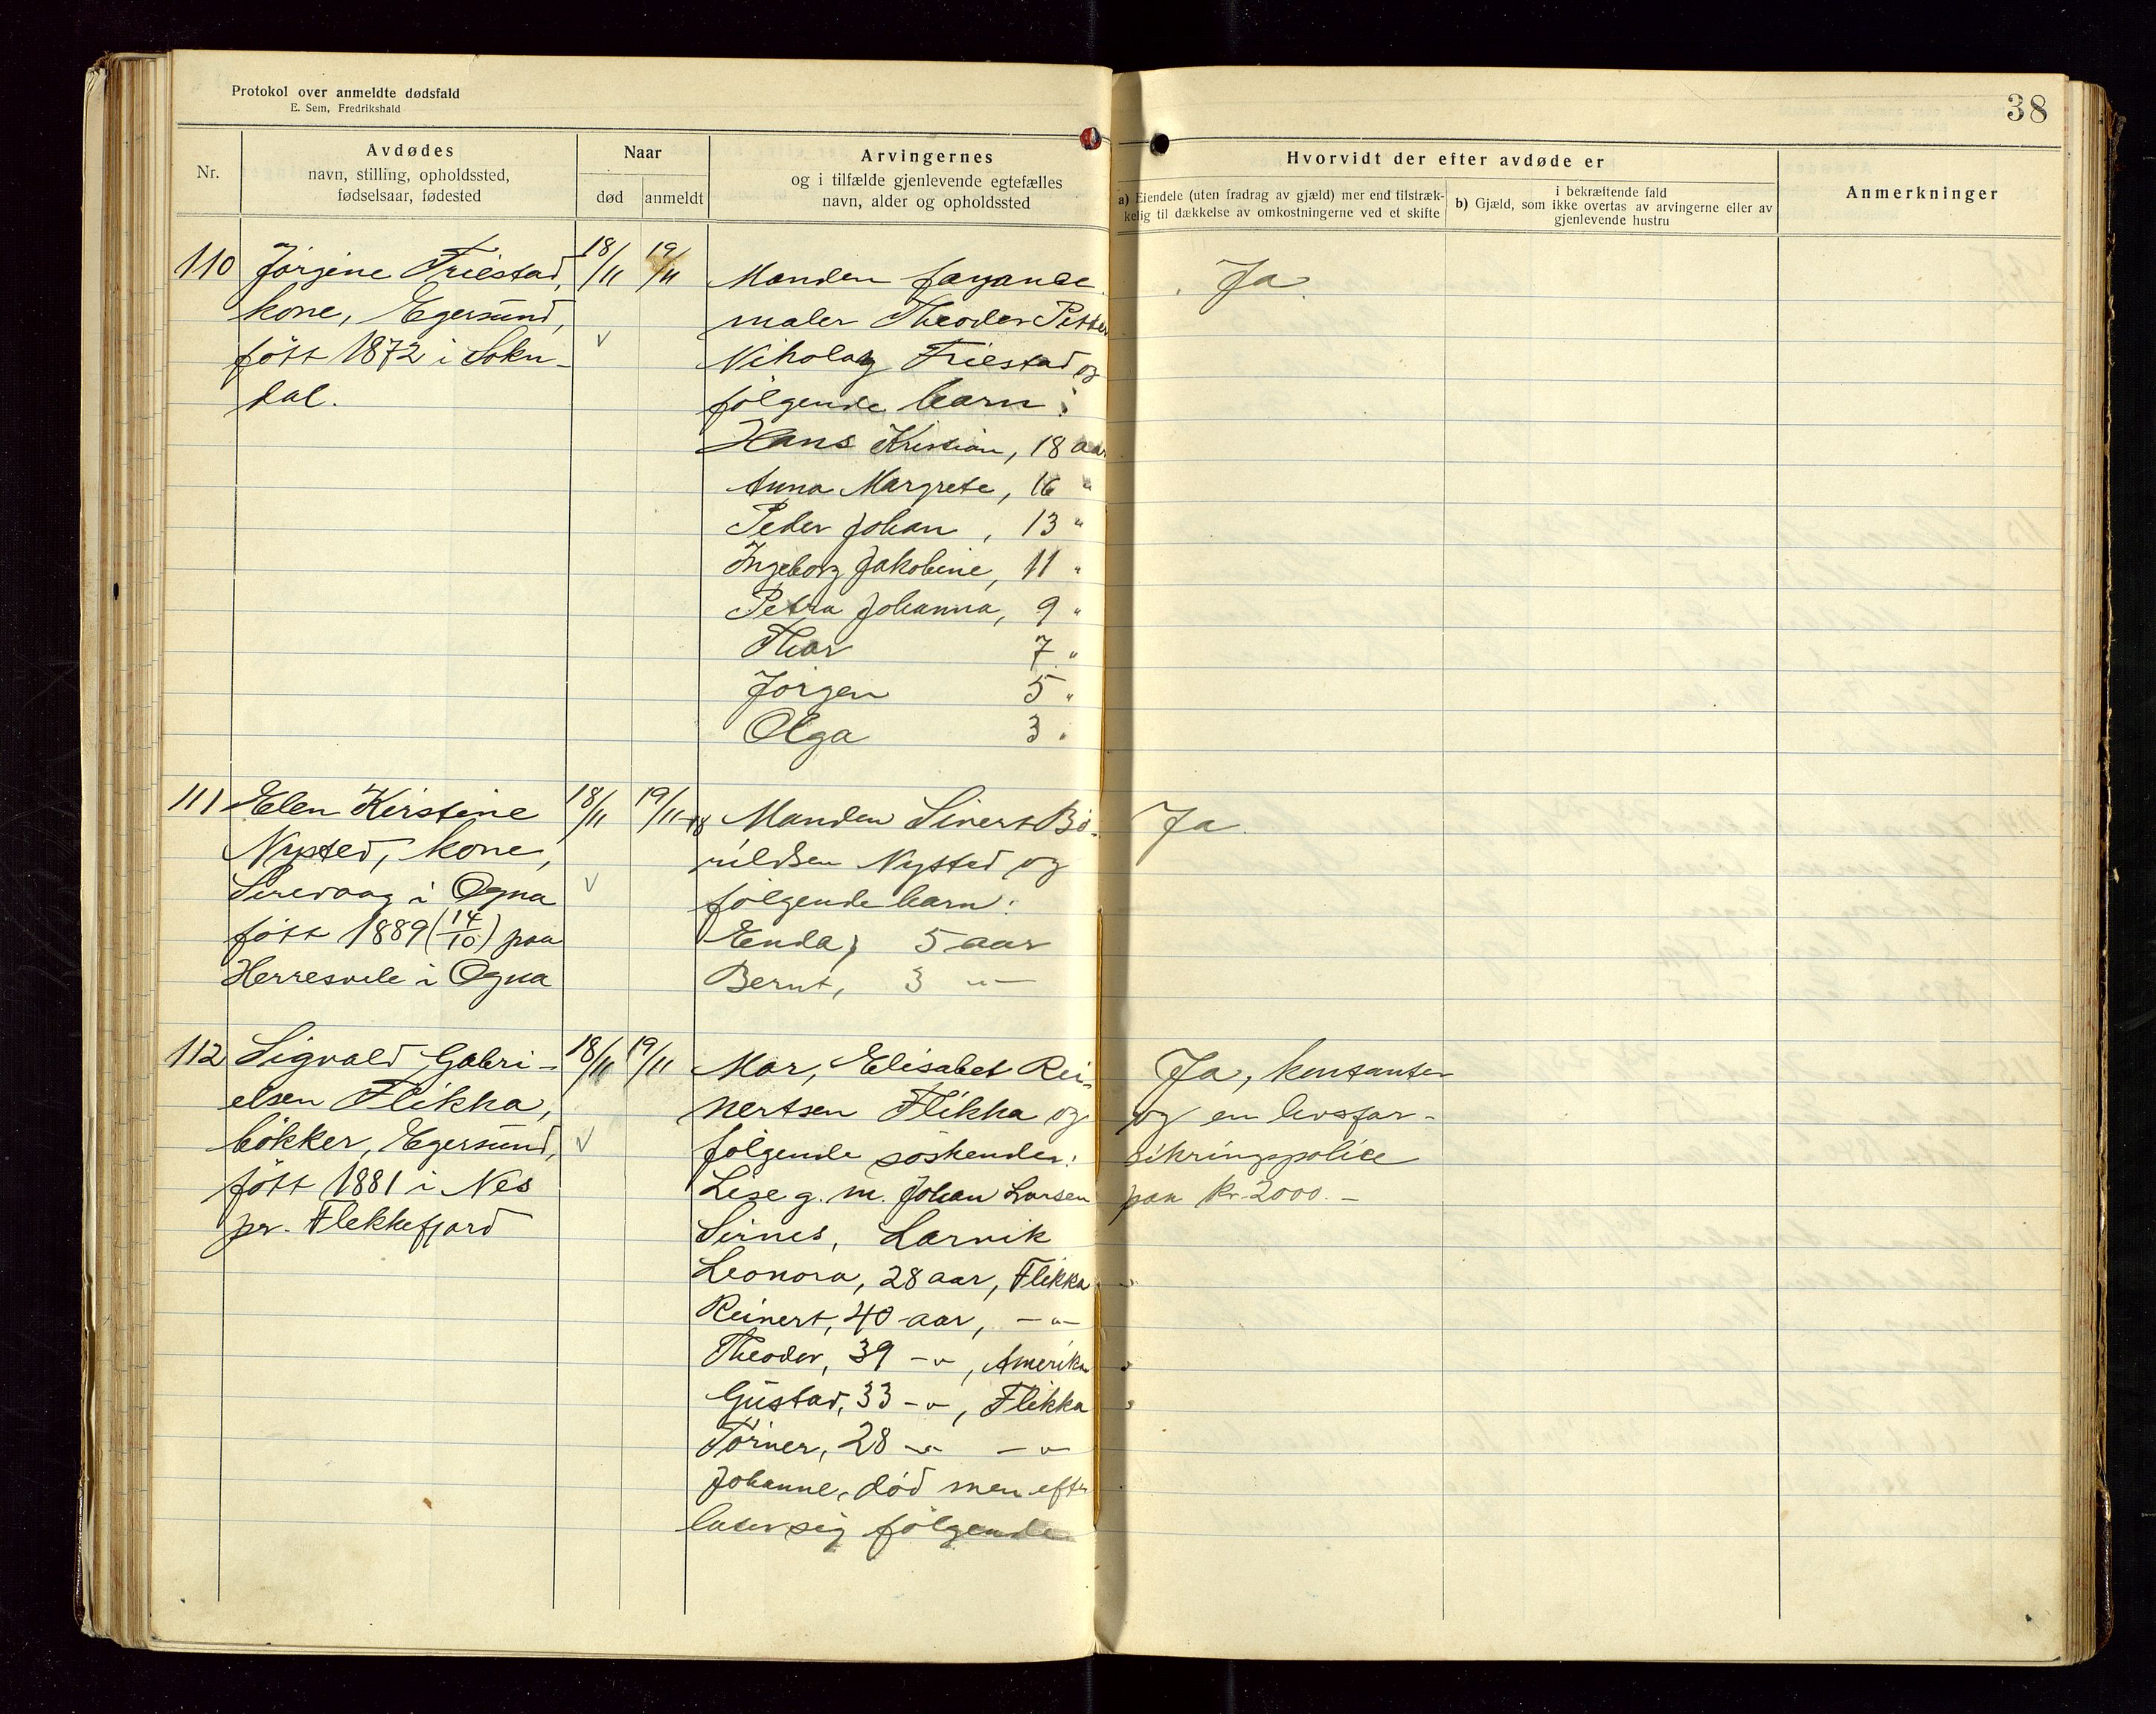 Protokol over anmeldte dødsfald
E. Sem, Fredrikshald
38
Nr.
Avdødes
navn, stilling, opholdssted,
fødselsaar, fødested
Naar
død
anmeldt
Arvingernes
og i tilfælde gjenlevende egtefælles
navn, alder og opholdssted
Hvorvidt der efter avdøde er
a) Eiendele (uten fradrag av gjæld) mer end tilstræk-
kelig til dækkelse av omkostningerne ved et skifte
i bekræftende fald
b) Gjæld, som ikke overtas av arvingerne eller av
gjenlevende hustru
Anmerkninger
110
Jörgine Friestad,
kone, Egersund,
født 1872 i Sokn-
dal.
18/11
19/11
Manden fayance
maler Theodor Petter
Nikolay Friestad og
følgende barn:
Hans Kristian, 18 aar
Anna Margrete, 16 "
Peder Johan, 13 "
Ingeborg Jakobine, 11 "
Petra Johanna, 9 "
Thor 7 "
Jörgen 5 "
Olga 3 "
Ja
111
Elen Kirstine
Nysted, kone,
Sirevaag i Ogna
født 1889 (14/10) paa
Herresvele i Ogna
18/11
19/11-18
Manden Sivert Bö-
rildsen Nysted og
følgende barn:
Enda, 5 aar
Bernt, 3 -"-
Ja
112
Sigvald Gabri-
elsen Flikka,
bökker, Egersund,
født 1881 i Nes
pr. Flekkefjord
18/11
19/11
Mor, Elisabet Rei-
nertsen Flikka og
følgende søskender:
Lise g. m. Johan Larsen
Sirnes, Larvik
Leonora, 28 aar, Flikka
Reinert, 40 aar, -"-
Theodor, 39 -"-, Amerika
Gustav, 33 -"-, Flikka
Törner, 28 -"- -"-
Johanne, død men efter
later sig følgende
Ja, kontanter
og en livsfor-
sikringspolice
paa kr. 2000.-